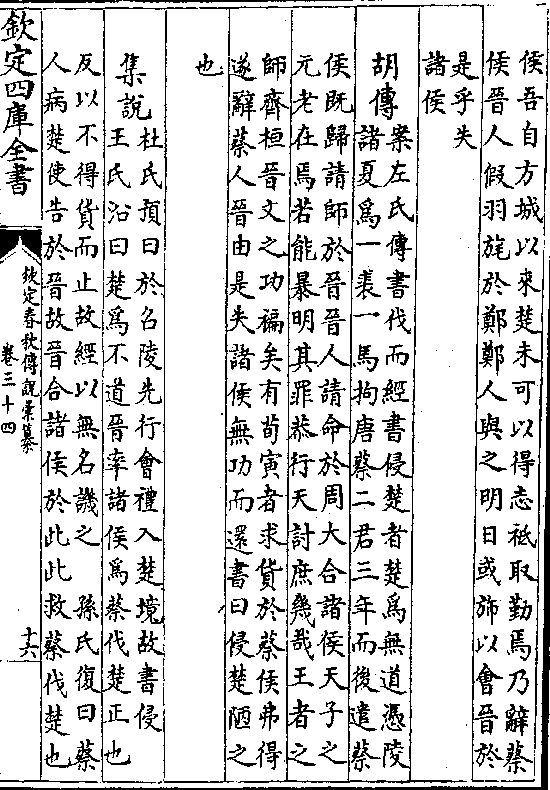 侯吾自方城以來楚未可以得志祗取勤焉乃辭蔡
侯晉人假羽旄於鄭鄭人與之明日或斾以會晉於
是乎失
諸侯
胡傳案左氏傳書伐而經書侵楚者楚為無道憑陵
諸夏為一裘一馬拘唐蔡二君三年而後遣蔡
侯既歸請師於晉晉人請命於周大合諸侯天子之
元老在焉若能暴明其罪恭行天討庶幾哉王者之
師齊桓晉文之功褊矣有荀寅者求貨於蔡侯弗得
遂辭蔡人晉由是失諸侯無功而還書曰侵楚陋之
也
集說杜氏預曰於召陵先行會禮入楚境故書侵
王氏沿曰楚為不道晉率諸侯為蔡伐楚正也
反以不得貨而止故經以無名譏之 孫氏復曰蔡
人病楚使告於晉故晉合諸侯於此此救蔡伐楚也
欽定四庫全書
欽定春秋傳說彙纂
卷三十四
十六